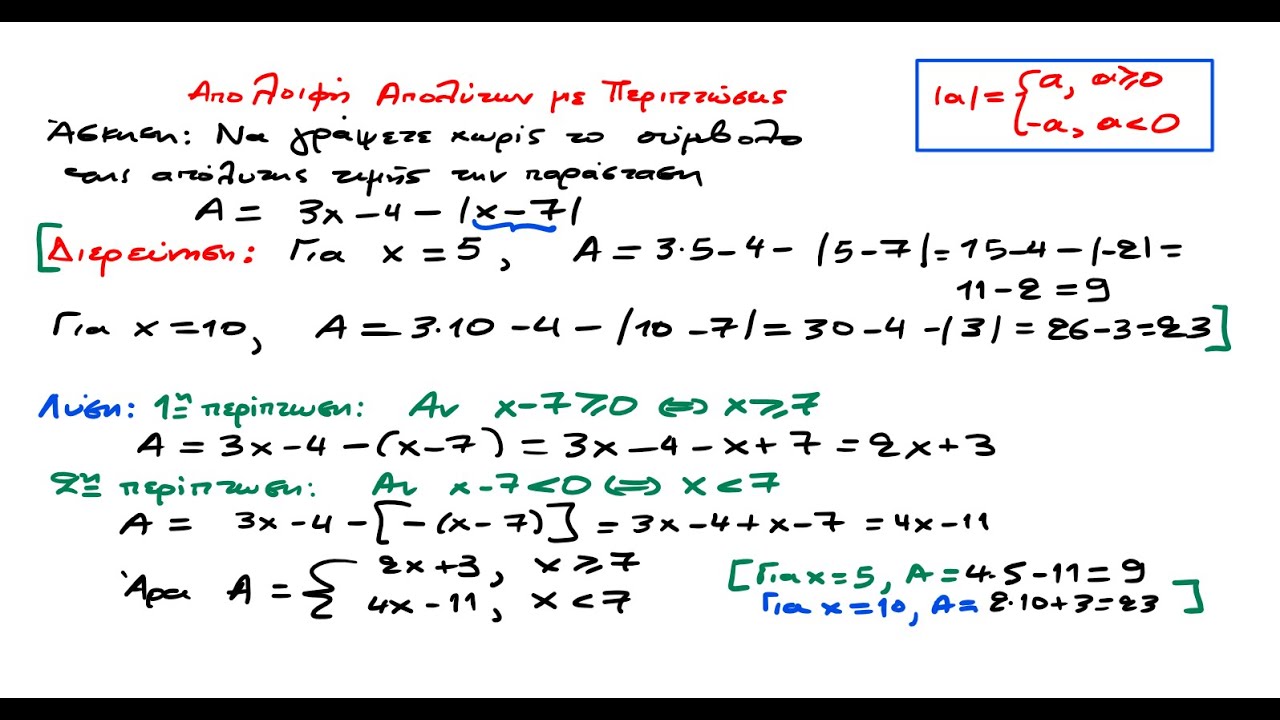 Απαλοιφή Απολύτων με Περιπτώσεις
|α| = { α, α≥0
-α, α<0
Άσκηση: Να γράψετε χωρίς το σύμβολο
της απόλυτης τιμής την παράσταση
A = 3x-4-|x-7|
[Διερεύνηση: Για x=5, A=3·5-4-|5-7|=15-4-|-2|=
11-2=9
Για x=10, A=3·10-4-|10-7|=30-4-|3|=26-3=23]
Λύση: 1η περίπτωση: Αν x-7≥0 ⇔ x≥7
A = 3x-4-(x-7) = 3x-4-x+7 = 2x+3
2η περίπτωση: Αν x-7<0 ⇔ x<7
A = 3x-4-[-(x-7)] = 3x-4+x-7 = 4x-11
Άρα A = { 2x+3, x≥7
4x-11, x<7
[Για x=5, A=4·5-11=9
Για x=10, A=2·10+3=23]